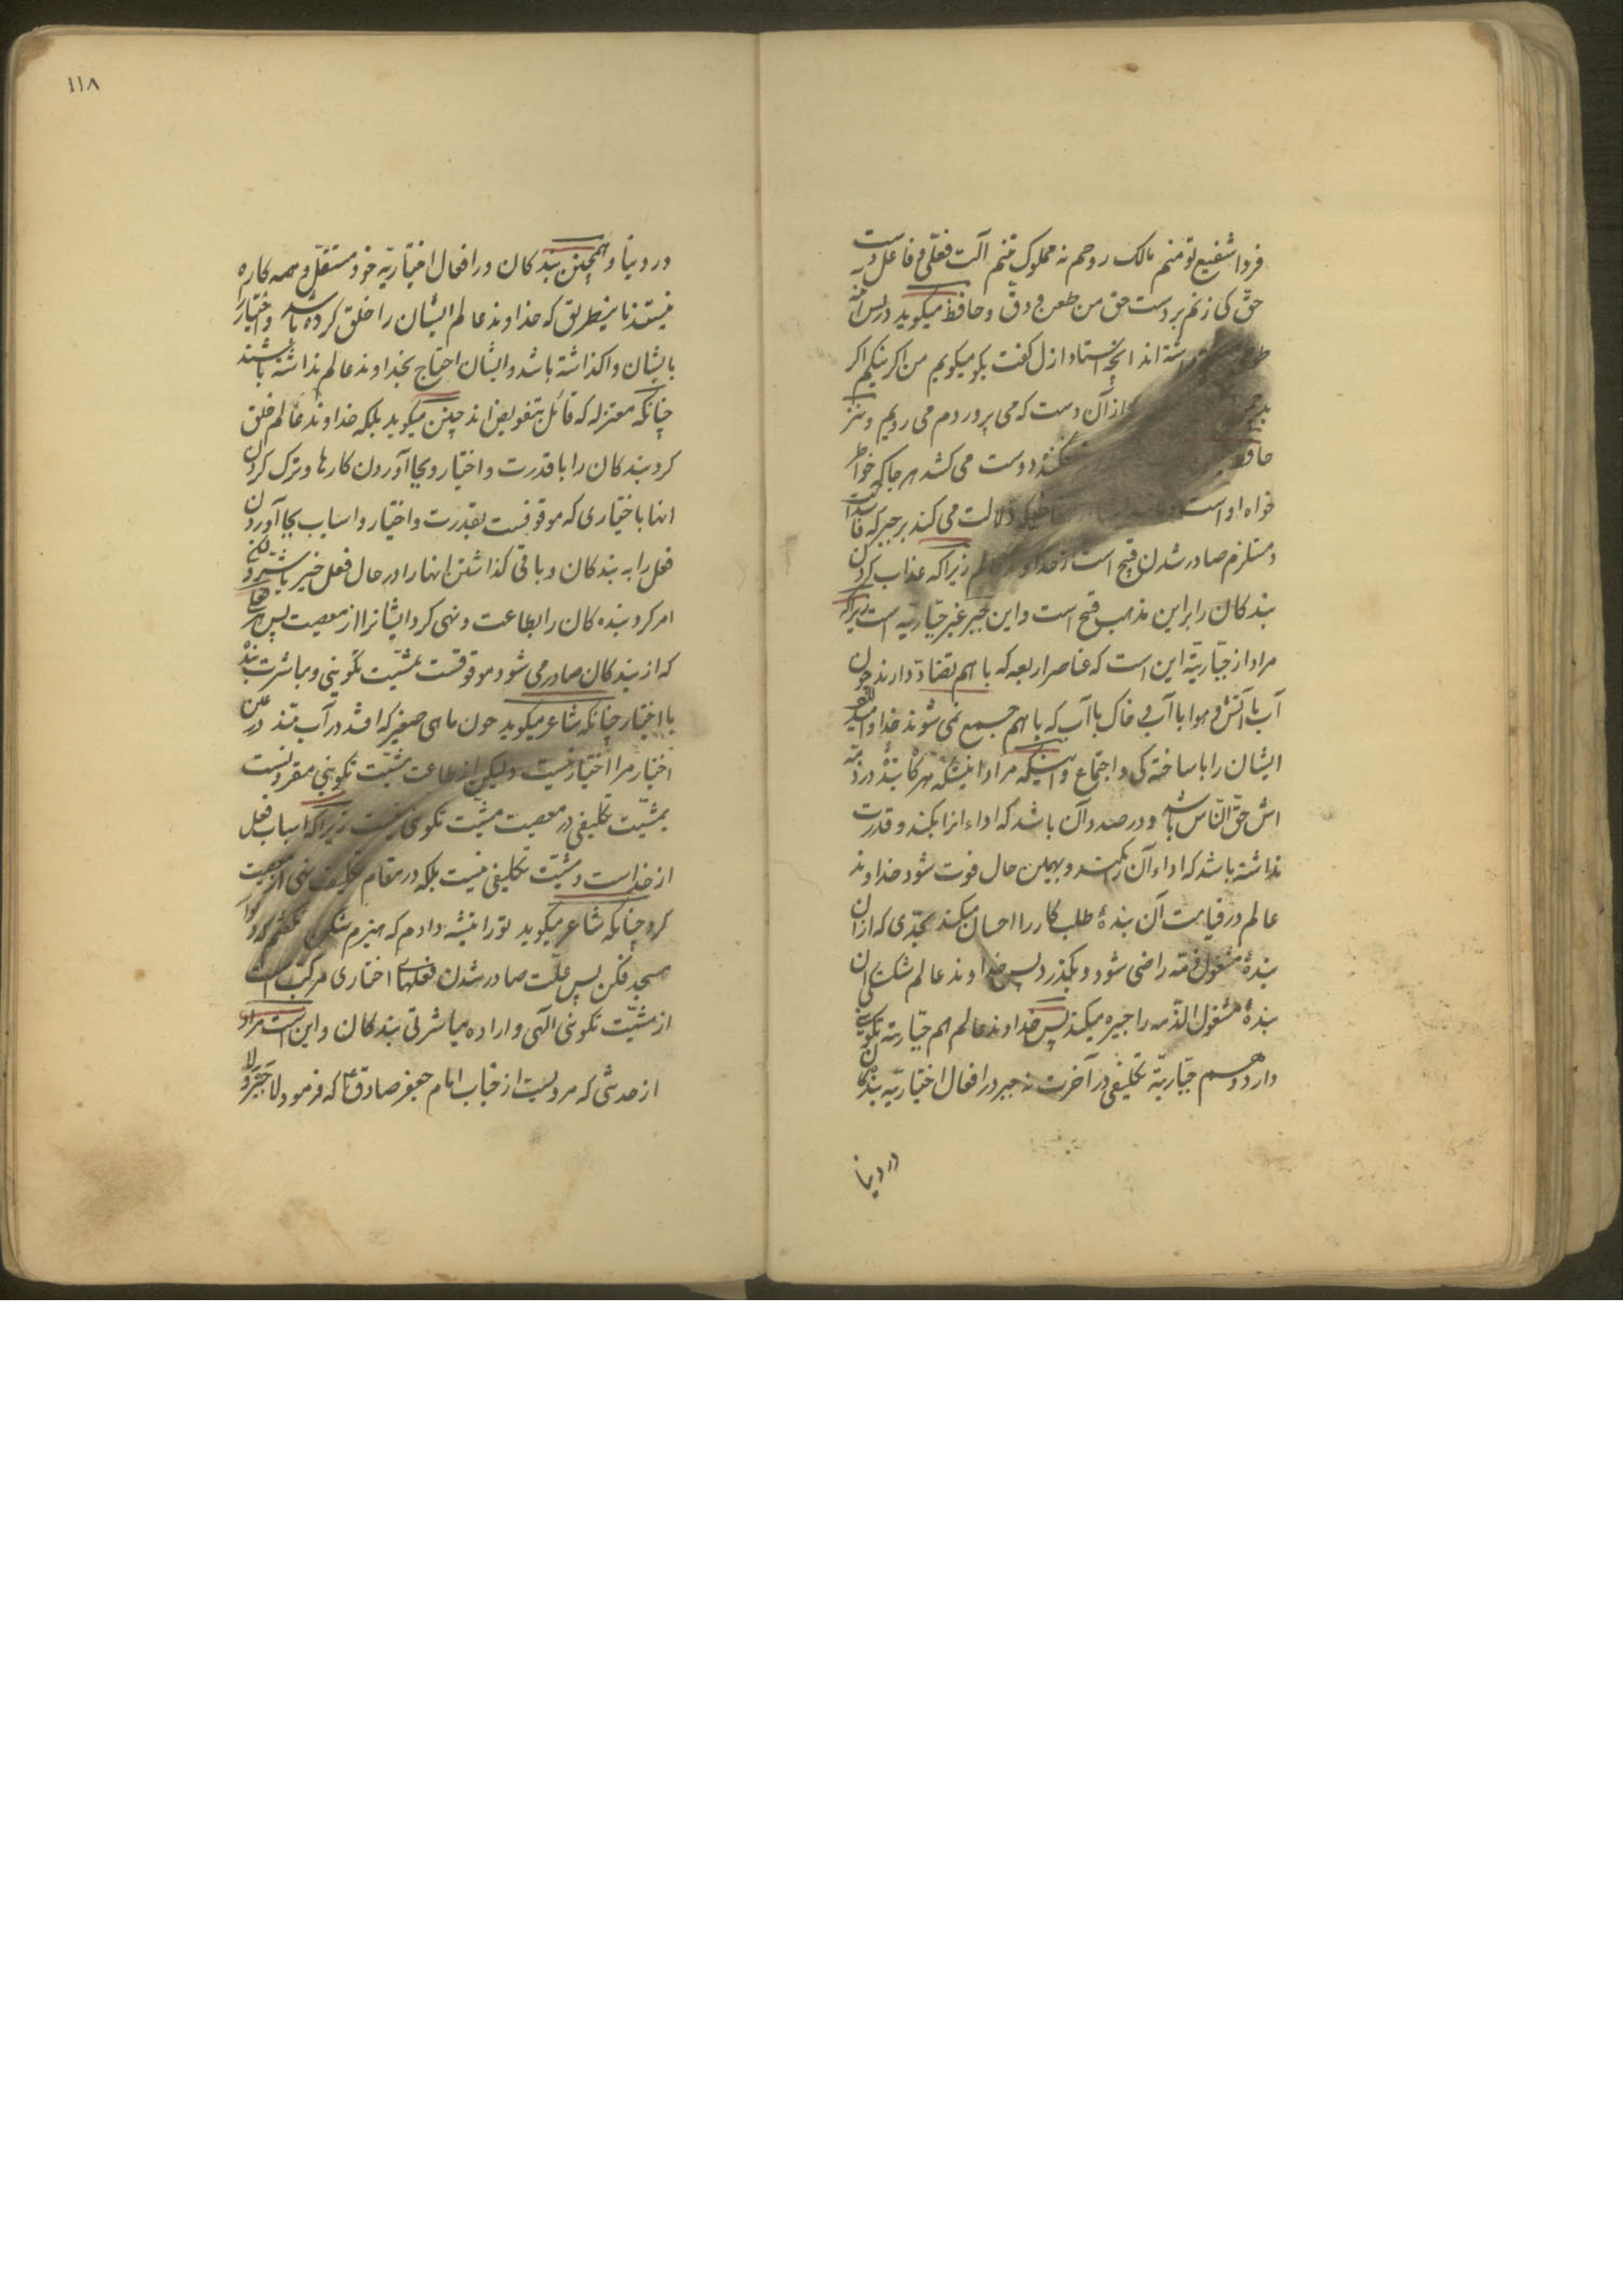 فردا شفیع تو منم مالک روحم نه مملوک تنم آلت فعلی و فاعل دست
حقّ کی زنم بر دست حق من طعن و دق و حافظ میگوید در پس آینه
داشته اند انچه استاد ازل گفت بگو میگویم من اگر نیکم اگر
از آن دست که می پروردم می رویم و نیز
دوست می کشد هر جا که خاطر
خواه اوست دلالت می کند بر جبر که فاسد است
و مستلزم صادر شدن قبیح است از خداوند عالم زیرا که عذاب کردن
بندکان را بر این مذهب قبیح است و این جبر غیر جبّاریّه است زیرا که
مراد از جبّاریّة این است که عناصر اربعه که با هم تضادّ دارند چون
آب با آتش و هوا با آب و خاک با آب که با هم جمع نمی شوند خداوند
ایشان را با ساختکی و اجتماع و اینکه مراد اینستکه هرکاه بنده در ذمّه
اش حقّ النّاس باشد و در صدد آن باشد که اداء انرا بکند و قدرت
نداشته باشد که اداء آن بکند و بهمین حال فوت شود خداوند
عالم در قیامت آن بندهٔ طلب کار را احسان میکند بحدّی که از آن
بندهٔ مشغول ذمّه راضی شود و بکذرد پس خداوند عالم شکستکی ان
بندهٔ مشغول الذمه را جبیره میکند پس خداوند عالم هم جبّاریّة تکوینی
دارد و هم جبّاریّة تکلیفی در آخرت نه جبر در افعال اختیاریّه بندکان
در دنیا
١١٨
در دنیا و همچنین بندکان در افعال اختیاریّه خود مستقلّ و همه کاره
نیستند باینطریق که خداوند عالم ایشان را خلق کرده باشد و اختیار را
بایشان واکذاشته باشد و ایشان احتیاج بخداوند عالم نداشته باشند
چنانکه معتزله که قائل بتفویض اند چنین میکوید بلکه خداوند عالم خلق
کرد بندکان را با قدرت و اختیار و بجا آوردن کارها و ترک کردن
انها باختیاری که موقوفست بقدرت و اختیار و اسباب بجا آوردن
فعل را به بندکان و باقی کذاشتن انها را در حال فعل خیر باشد
امر کرد بنده کان را بطاعت و نهی کرد ایشانرا از معصیت پس
که از بندکان صادر می شود موقوفست بمشیّت تکوینی و مباشرت بنده
با اختیار چنانکه شاعر میکوید چون ماهی صغیر که افتد در آب تند در عین
اختیار مرا اختیار نیست ولیکن از طاعت مشیّت تکوینی مقرونست
بمشیّت تکلیفی در معصیت مشیّت تکوینی نیست زیرا که اسباب فعل
از خداست و مشیّت تکلیفی نیست بلکه در مقام تکلیف نهی از معصیت
کرد چنانکه شاعر میکوید تو را تیشه دادم که هیزم شکن نکفتم که دیوار
مسجد فکن پس علّت صادر شدن فعلهای اختیاری مرکّب است
از مشیّت تکوینی الهی و اراده مباشرتی بندکان و این است مراد
از حدیثی که مرویست از جناب امام جعفر صادق ع که فرمود لا جبر و لا